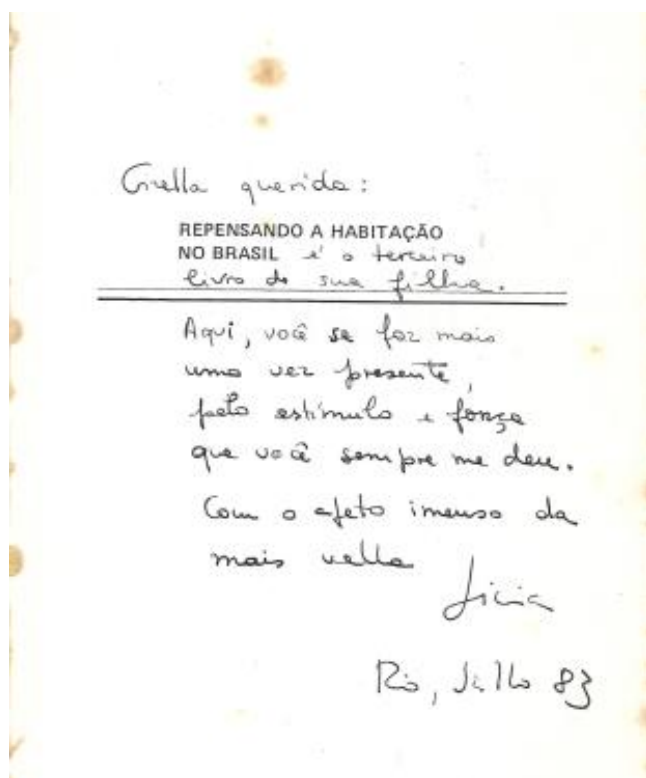 Grella querida:
REPENSANDO A HABITAÇÃO
NO BRASIL é o terceiro
livro de sua filha.
Aqui, você se faz mais
uma vez presente,
pelo estímulo e força
que você sempre me deu.
Com o afeto imenso da
mais velha
Licia
Rio, Julho 83